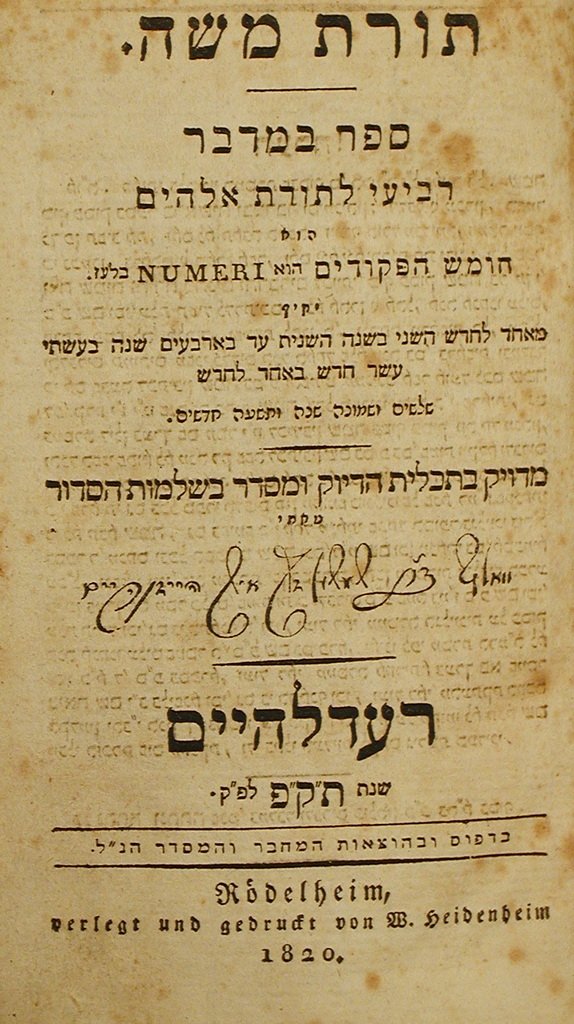 תורת משה.
ספר במדבר
רביעי לתורת אלהים
הוא
חומש הפקודים הוא NUMERI בלעז.
יקיף
מאחד לחדש השני בשנה השנית עד בארבעים שנה בעשתי
עשר חדש באחד לחדש
שלשים ושמונה שנה ותשעה חדשים.
מדויק בתכלית הדיוק ומסדר בשלמות הסדור
ממני
וואלף היידנהיים
רעדלהיים
שנת ת״ק״פ לפ״ק.
בדפוס ובהוצאות המחבר והמסדר הנ״ל.
Rödelheim,
verlegt und gedruckt von W. Heidenheim
1820.